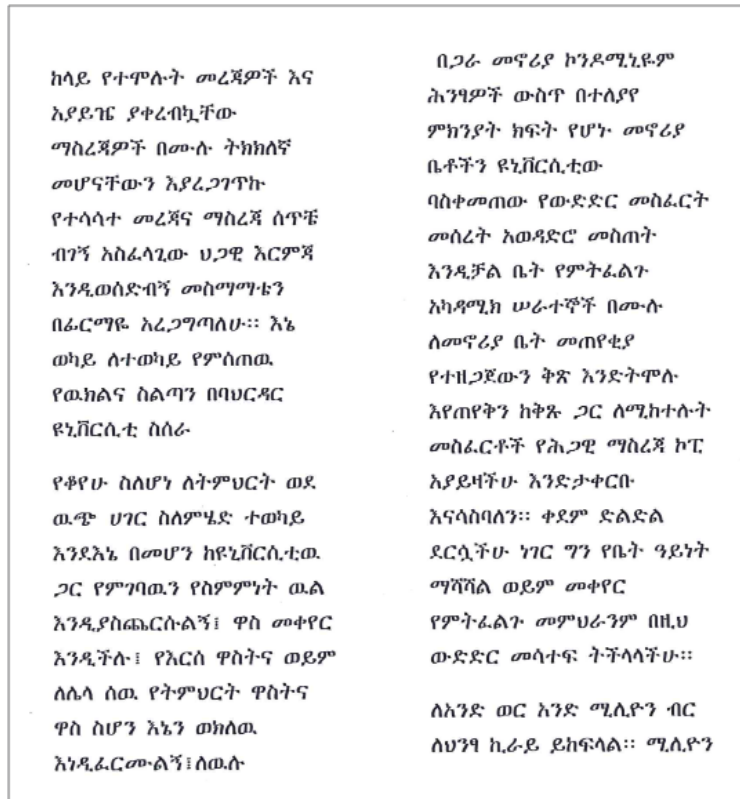 ከላይ የተሞሉት መረጃዎች እና
አያይዤ ያቀረብኳቸው
ማስረጃዎች በሙሉ ትክክለኛ
መሆናቸውን እያረጋገጥኩ
የተሳሳተ መረጃና ማስረጃ ሰጥቼ
ብገኝ አስፈላጊው ህጋዊ እርምጃ
እንዲወሰድብኝ መስማማቴን
በፊርማዬ አረጋግጣለሁ። እኔ
ወካይ ለተወካይ የምሰጠዉ
የዉክልና ስልጣን በባህርዳር
ዩኒቨርሲቲ ስሰራ
የቆየሁ ስለሆነ ለትምህርት ወደ
ዉጭ ሀገር ስለምሄድ ተወካይ
እንደእኔ በመሆን ከዩኒቨርሲቲዉ
ጋር የምገባዉን የስምምነት ዉል
እንዲያስጨርሱልኝ፤ ዋስ መቀየር
እንዲችሉ፤ የእርሰ ዋስትና ወይም
ለሌላ ሰዉ የትምህርት ዋስትና
ዋስ ስሆን እኔን ወክለዉ
እነዲፈርሙልኝ፤ለዉሉ
በጋራ መኖሪያ ኮንዶሚኒዬም
ሕንፃዎች ውስጥ በተለያየ
ምክንያት ክፍት የሆኑ መኖሪያ
ቤቶችን ዩኒቨርሲቲው
ባስቀመጠው የውድድር መስፈርት
መሰረት አወዳድሮ መስጠት
እንዲቻል ቤት የምትፈልጉ
አካዳሚክ ሠራተኞች በሙሉ
ለመኖሪያ ቤት መጠየቂያ
የተዘጋጀውን ቅጽ እንድትሞሉ
እየጠየቅን ከቅጹ ጋር ለሚከተሉት
መስፈርቶች የሕጋዊ ማስረጃ ኮፒ
አያይዛችሁ እንድታቀርቡ
እናሳስባለን። ቀደም ድልድል
ደርሷችሁ ነገር ግን የቤት ዓይነት
ማሻሻል ወይም መቀየር
የምትፈልጉ መምህራንም በዚህ
ውድድር መሳተፍ ትችላላችሁ።
ለአንድ ወር አንድ ሚሊዮን ብር
ለህንፃ ኪራይ ይከፍላል። ሚሊዮን